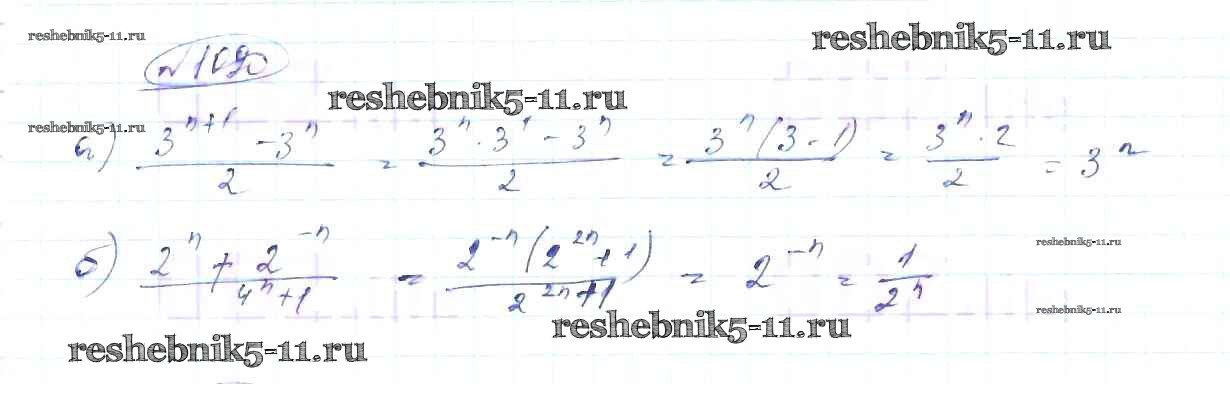 reshebnik5-11.ru
reshebnik5-11.ru
№1090
reshebnik5-11.ru
reshebnik5-11.ru
а) (3^(n+1) - 3^n)/2 = (3^n · 3^1 - 3^n)/2 = 3^n(3-1)/2 = (3^n · 2)/2 = 3^n
б) (2^n + 2^(-n))/(4^n+1) = 2^(-n)(2^(2n)+1)/(2^(2n)+1) = 2^(-n) = 1/2^n
reshebnik5-11.ru
reshebnik5-11.ru
reshebnik5-11.ru
reshebnik5-11.ru